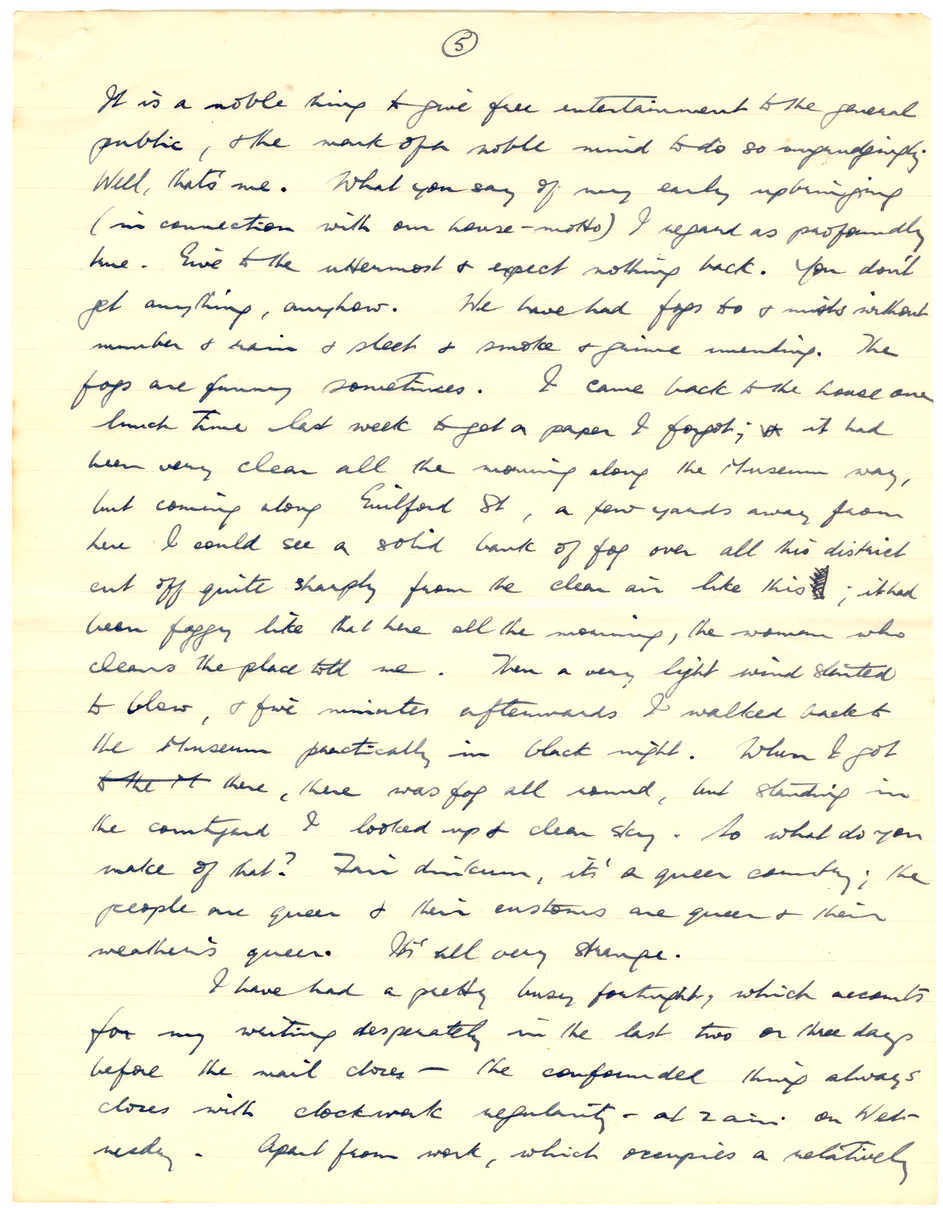 5
It is a noble thing to give free entertainment to the general
public, & the mark of a noble mind to do so ungrudgingly.
Well, that's me. What you say of my early upbringing
(in connection with our house-motto) I regard as profoundly
true. Give to the uttermost & expect nothing back. You don't
get anything, anyhow. We have had fogs to & mists without
number & rain & sleet & smoke & grime unending. The
fogs are funny sometimes. I came back to the house one
lunch time last week to get a paper I forgot; it had
been very clear all the morning along the Museum way,
but coming along Guilford St, a few yards away from
here I could see a solid bank of fog over all this district
cut off quite sharply from the clear air like this ; it had
been foggy like that here all the morning, the woman who
cleans the place told me. Then a very light wind started
to blow, & five minutes afterwards I walked back to
the Museum practically in black night. When I got
to the M there, there was fog all round, but standing in
the courtyard I looked up & clear sky. So what do you
make of that? Fair dinkum, it's a queer country; the
people are queer & their customs are queer & their
weather's queer. It's all very strange.
I have had a pretty busy fortnight, which accounts
for my writing desperately in the last two or three days
before the mail closes — the confounded thing always
closes with clockwork regularity - at 2 a.m. on Wed-
nesday. Apart from work, which occupies a relatively